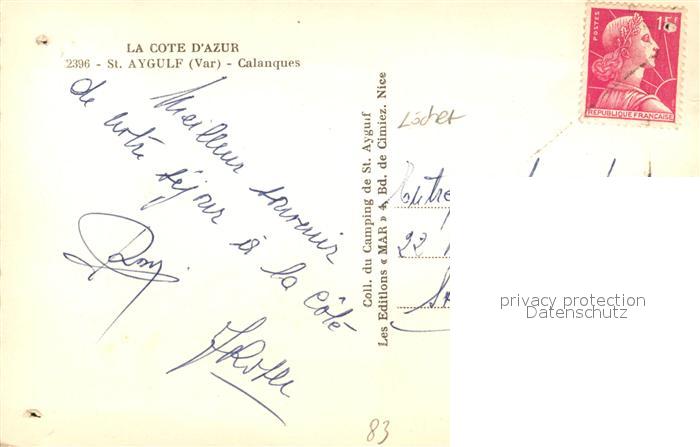 LA COTE D'AZUR
2396 - St. AYGULF (Var) - Calanques
Meilleur souvenir
de notre séjour à la Côte
Coll. du Camping de St. Aygulf
Les Editions « MAR » 4, Bd. de Cimiez, Nice
Löcher
POSTES
15F
REPUBLIQUE FRANÇAISE
22
privacy protection
Datenschutz
83